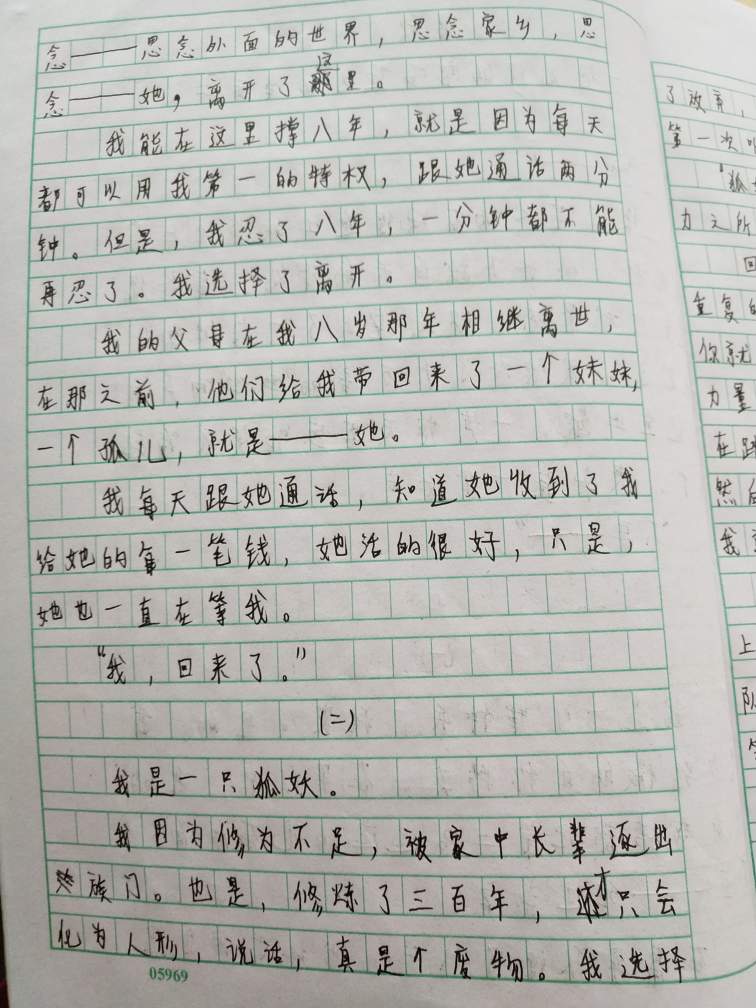 念——思念外面的世界，思念家乡，思
念——她，离开了这里。
我能在这里撑八年，就是因为每天
都可以用我第一的特权，跟她通话两分
钟。但是，我忍了八年，一分钟都不能
再忍了。我选择了离开。
我的父母在我八岁那年相继离世，
在那之前，他们给我带回来了一个妹妹，
一个孤儿，就是——她。
我每天跟她通话，知道她收到了我
给她的每一笔钱，她活的很好，只是，
她也一直在等我。
“我，回来了。”
（二）
我是一只狐妖。
我因为修为不足，被家中长辈逐出
族门。也是，修炼了三百年，才只会
化为人形，说话，真是个废物。我选择
05969
第一次
力之所
回
重复
你就
力量
在
然后
我
上